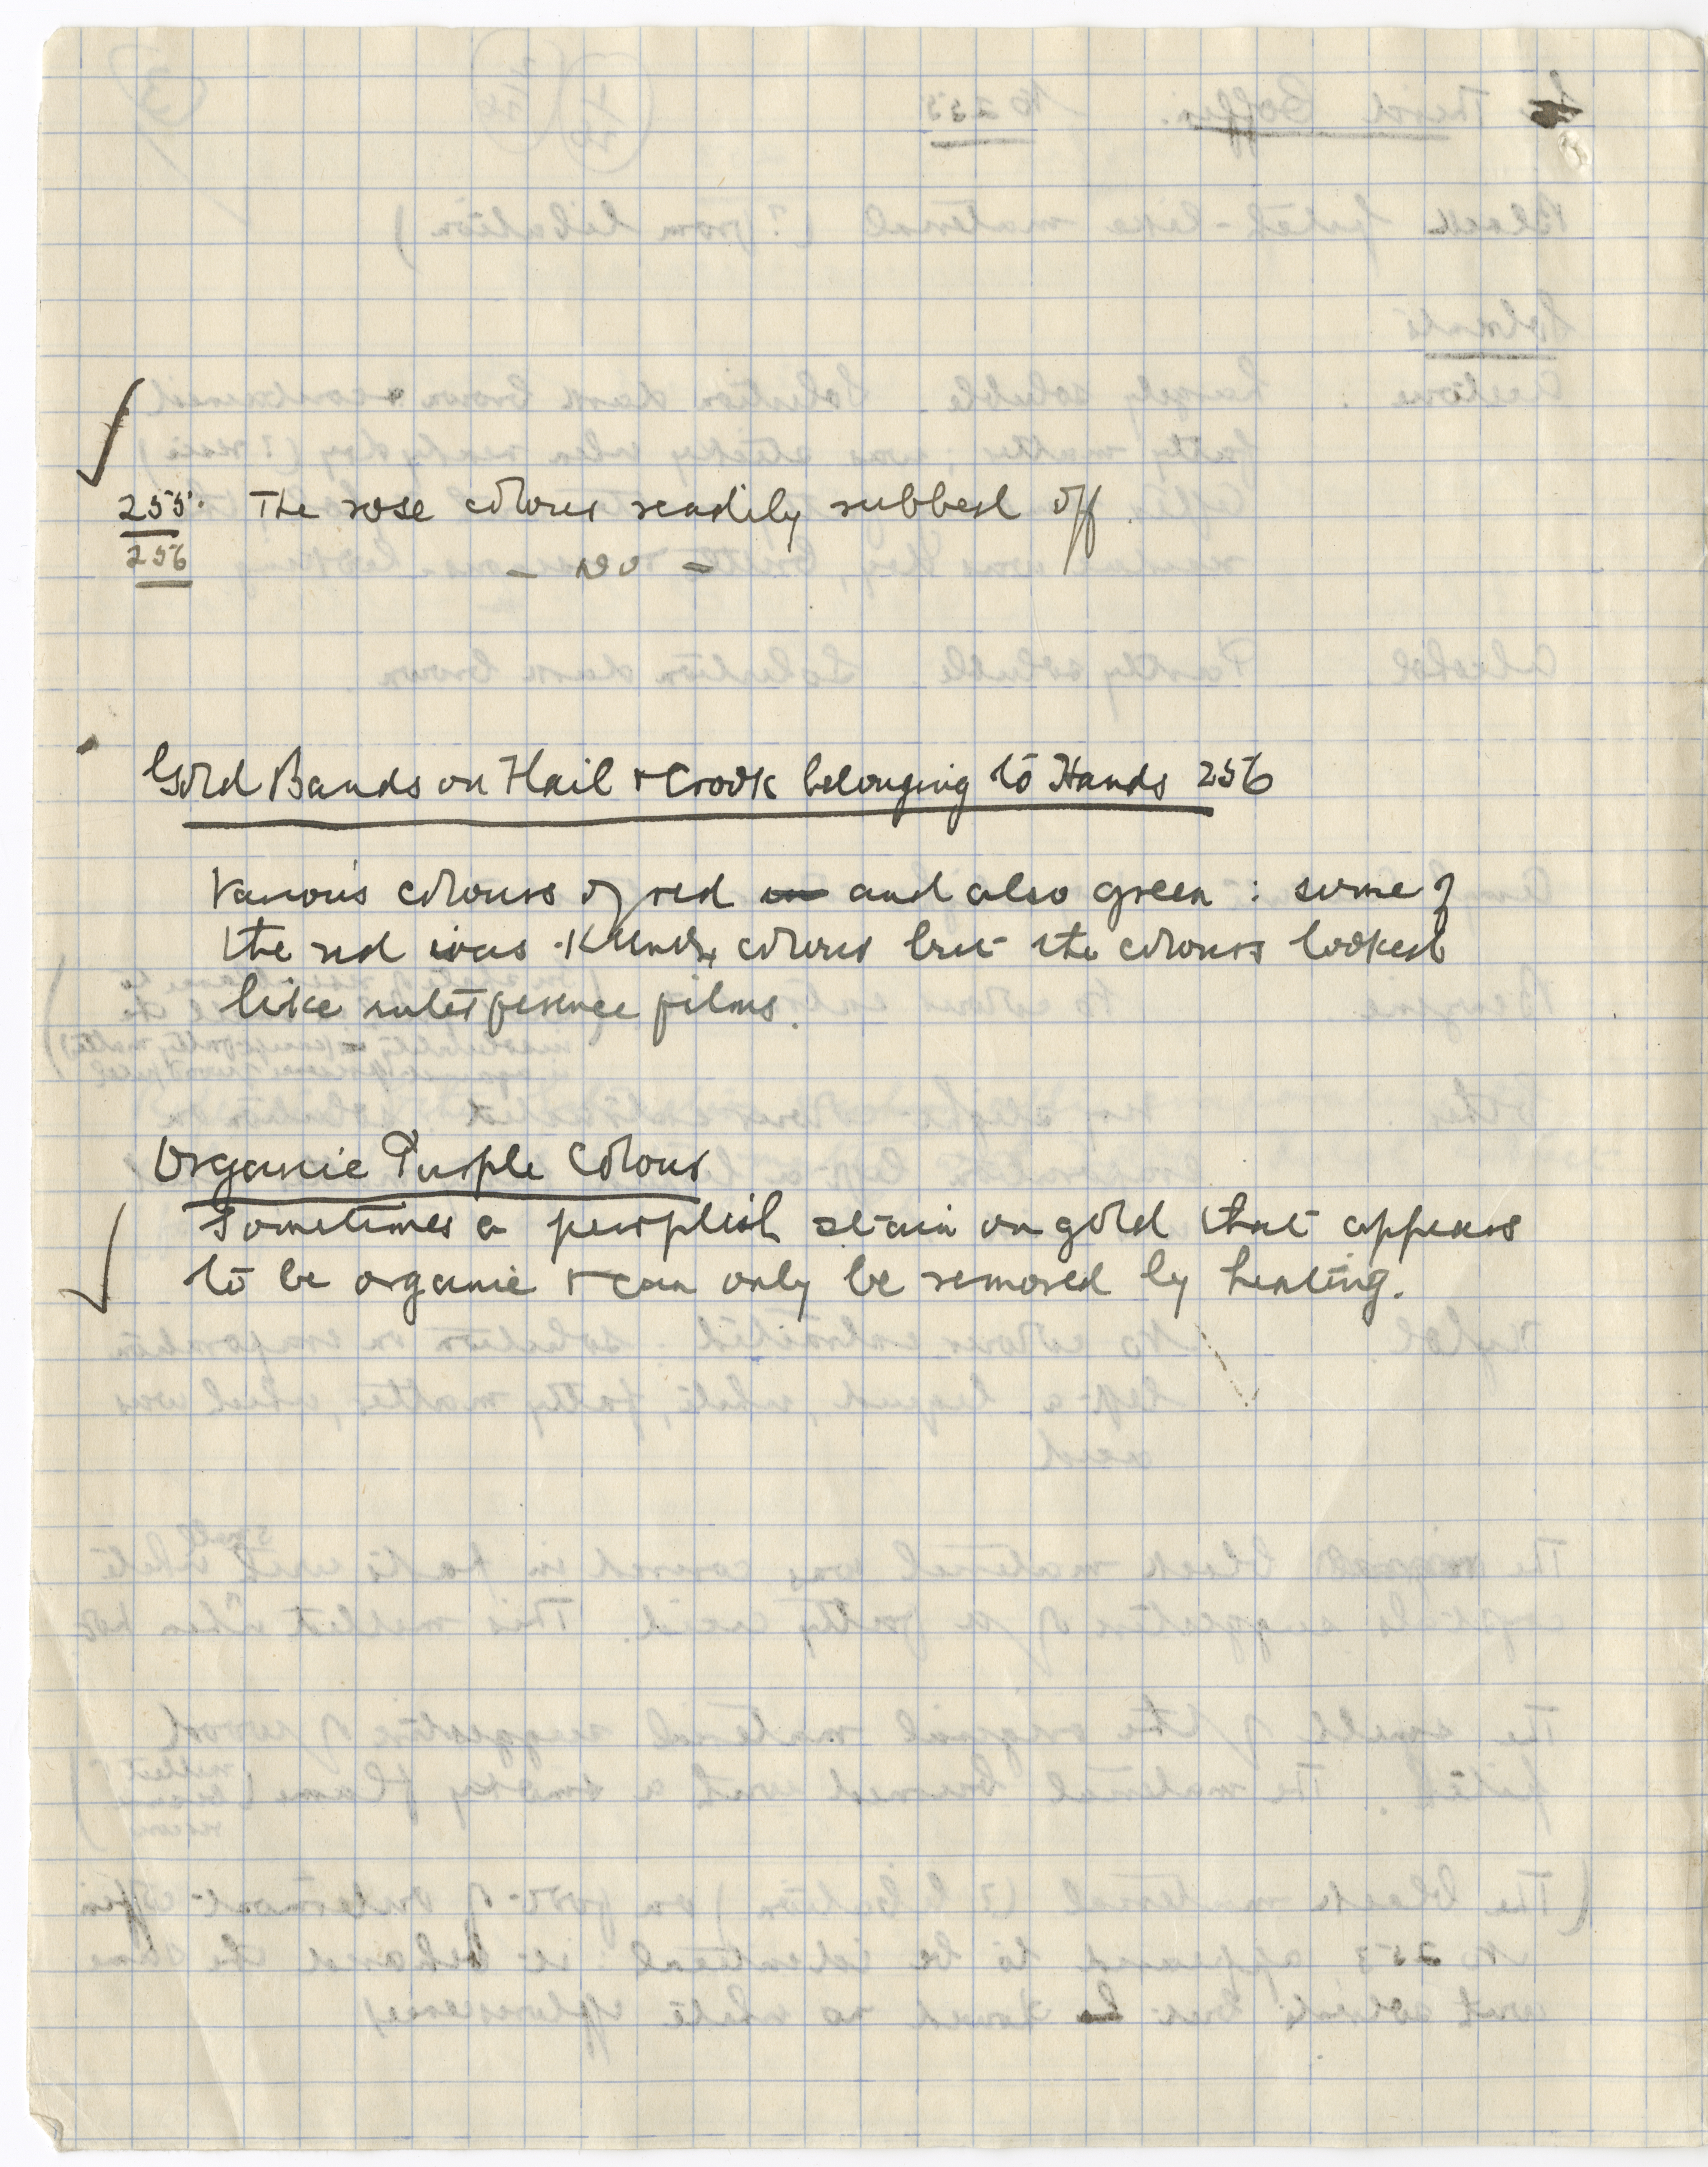 255. The rose colour readily rubbed off.
256 – do –
Gold Bands on Flail & Crook belonging to Hands 256
Various colours of red and also green : some of
the red was colour but the colours looked
like interference films.
Organic Purple Colour
Sometimes a purplish stain on gold that appears
to be organic & can only be removed by heating.